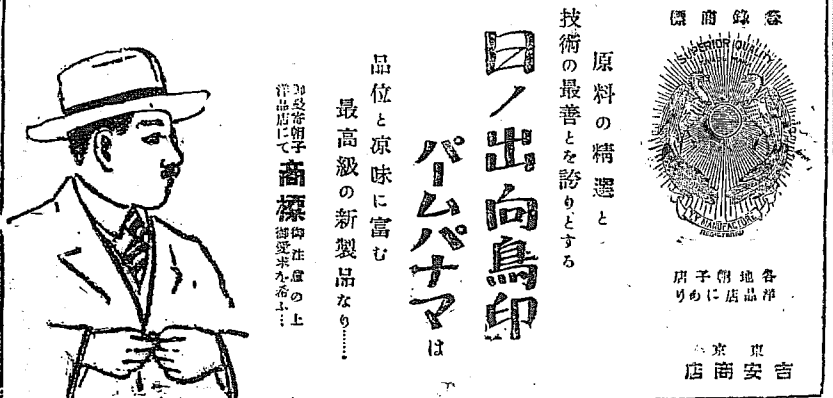 登錄商標
SUPERIOR QUALITY
MANUFACTURE
REGISTERED
各地帽子店
洋品店にあり
東京
吉安商店
原料の精選と
技術の最善とを誇りとする
日ノ出向鳥印
パームパナマは
品位と凉味に富む
最高級の新製品なり……
御最寄帽子
洋品店にて
商標
御注意の上
御愛求を希ふ…